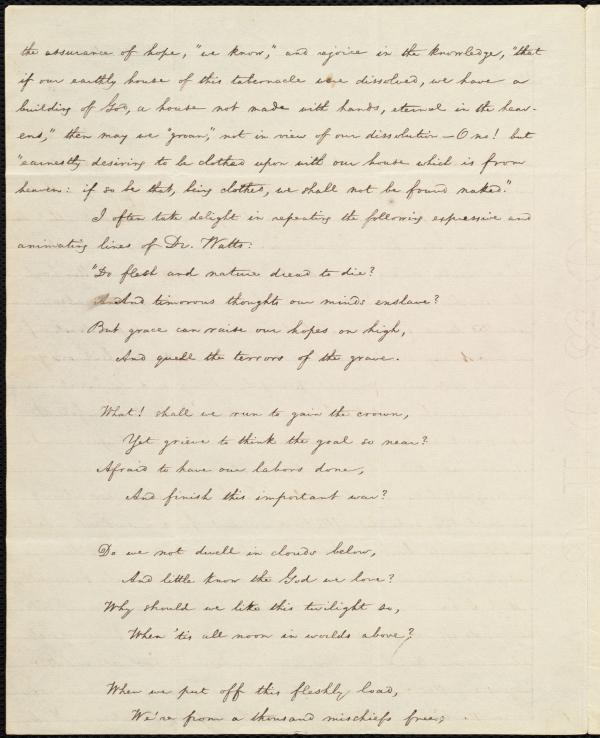 the assurance of hope, "we know," and rejoice in the knowledge, "that
if our earthly house of this tabernacle were dissolved, we have a
building of God, a house not made with hands, eternal in the heav-
ens," then may we "groan," not in view of our dissolution — O no! but
"earnestly desiring to be clothed upon with our house which is from
heaven: if so be that, being clothed, we shall not be found naked."
I often take delight in repeating the following expressive and
animating lines of Dr. Watts:
"Do flesh and nature dread to die?
And timorous thoughts our minds enslave?
But grace can raise our hopes on high,
And quell the terrors of the grave.
What! shall we run to gain the crown,
Yet grieve to think the goal so near?
Afraid to have our labors done,
And finish this important war?
Do we not dwell in clouds below,
And little know the God we love?
Why should we like this twilight so,
When 'tis all noon in worlds above?
When we put off this fleshly load,
We're from a thousand mischiefs free;